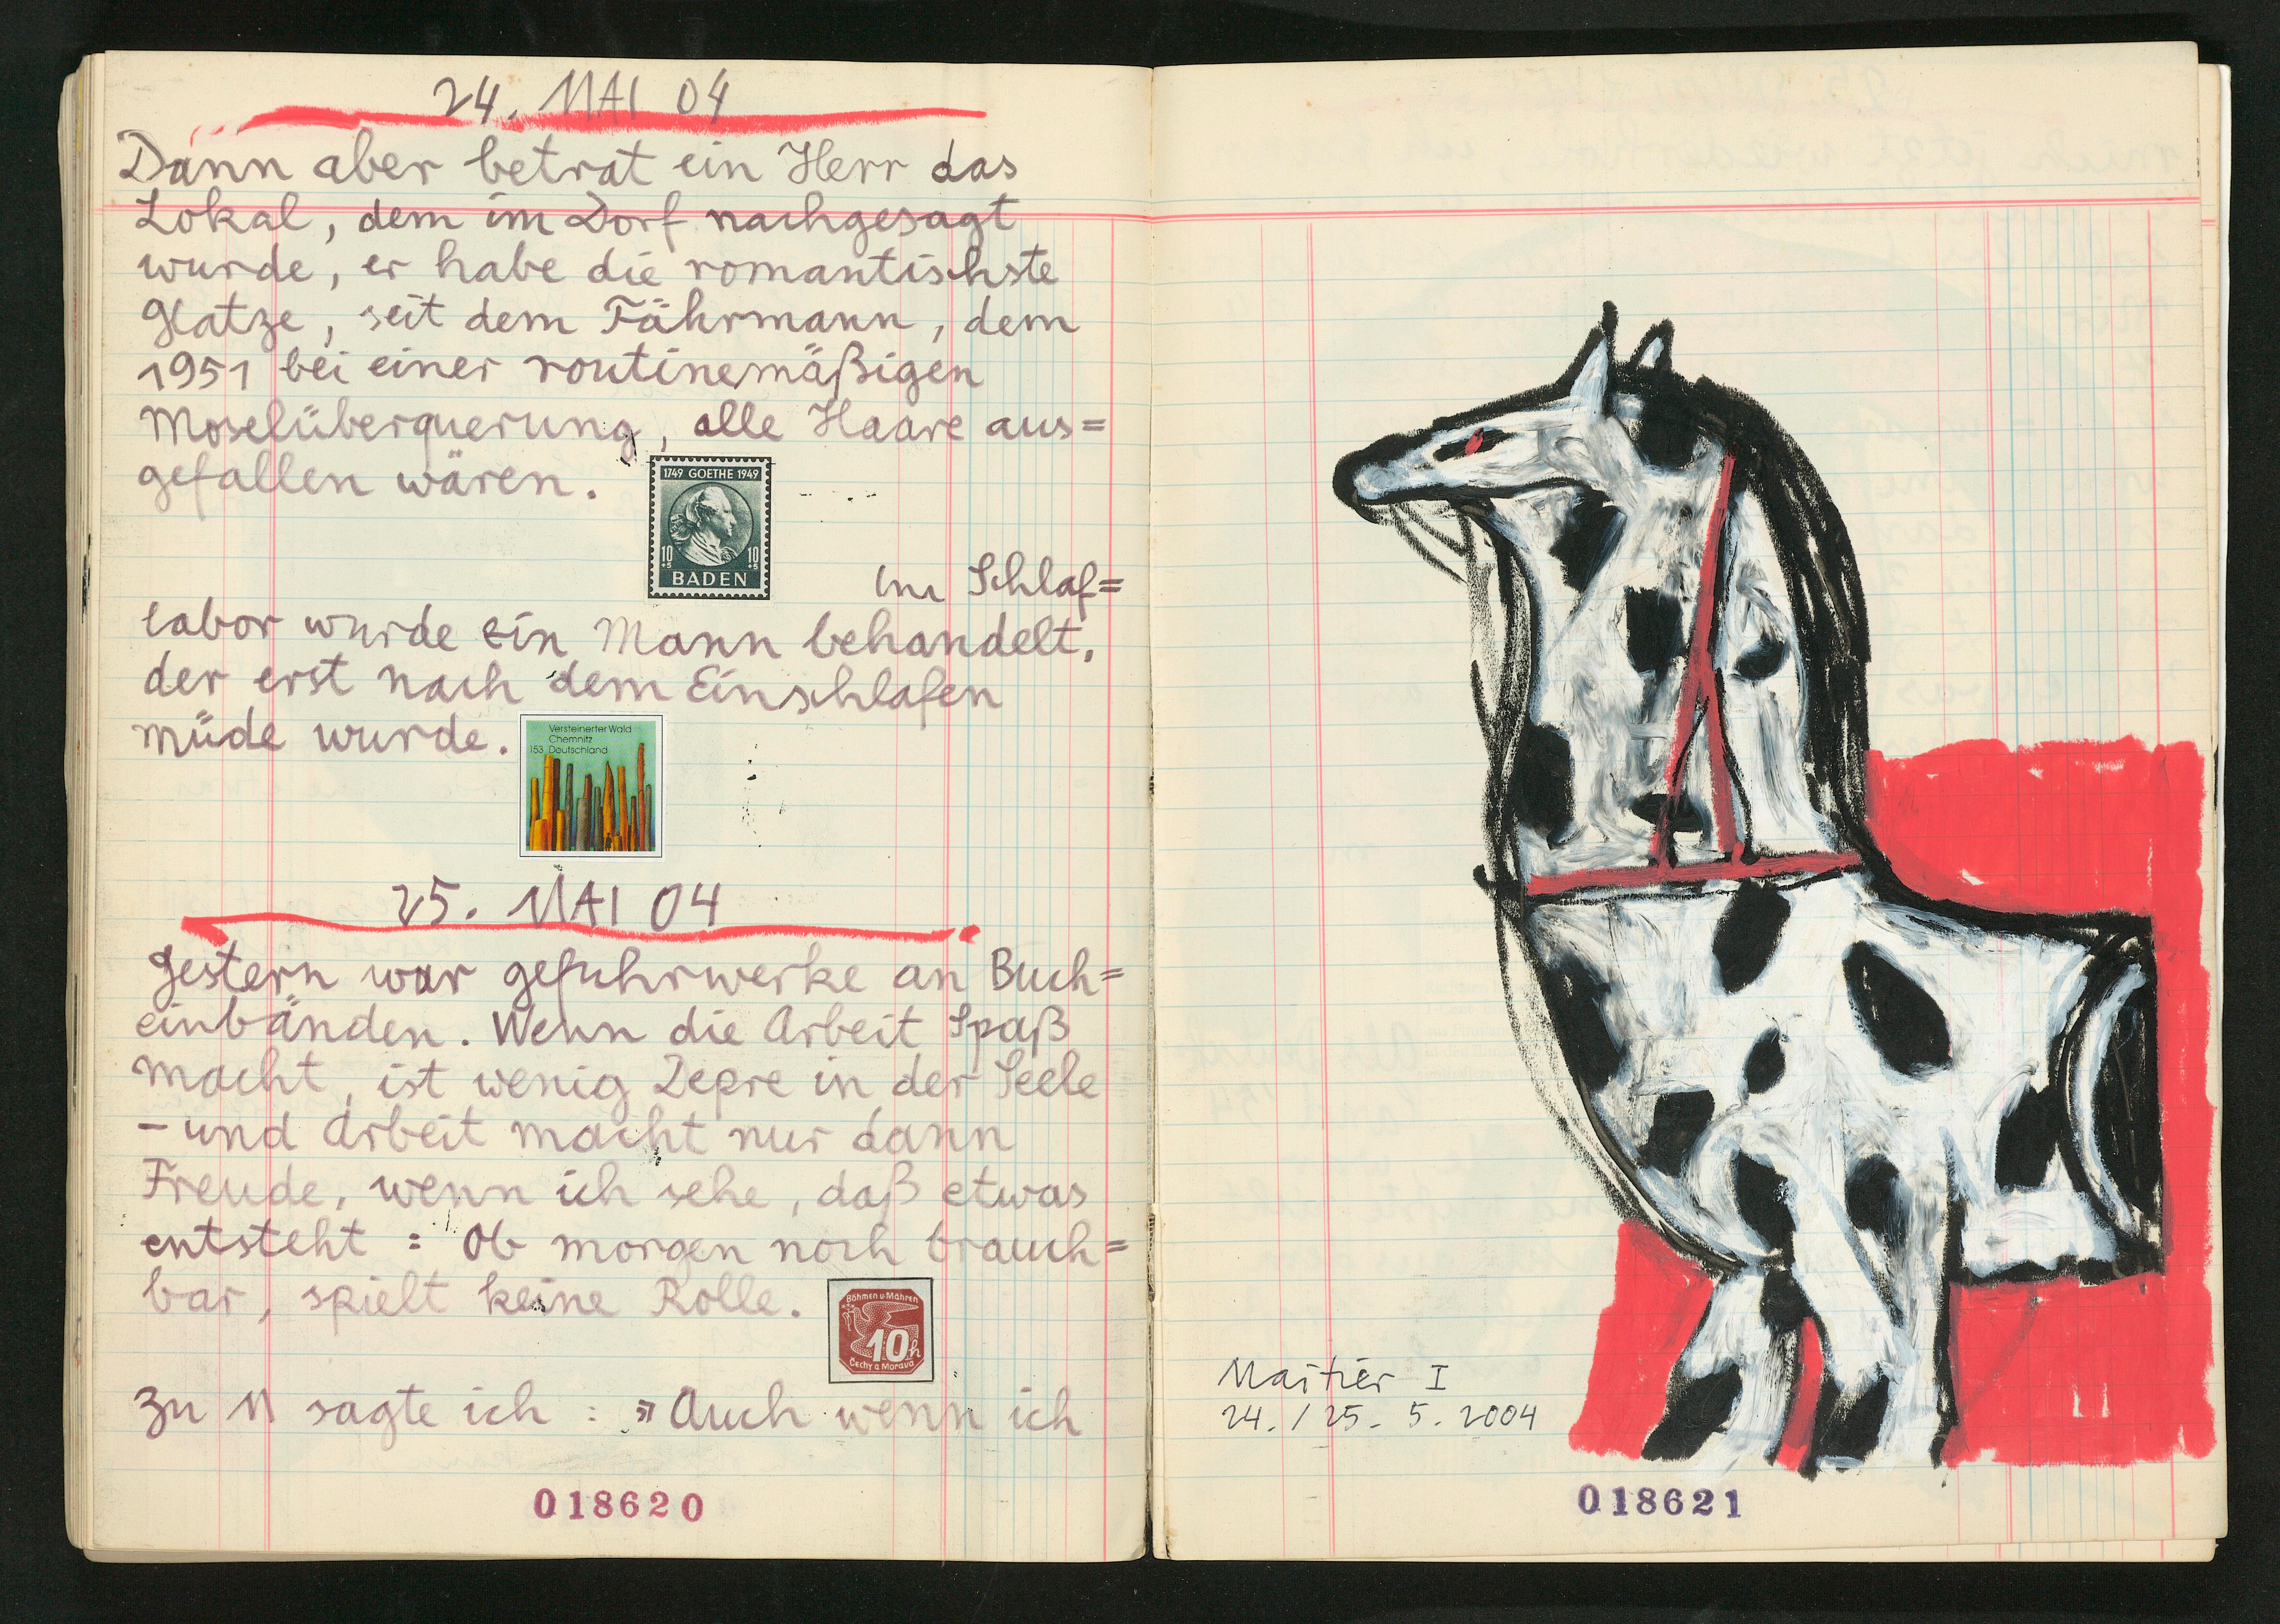 24. MAI 04
Dann aber betrat ein Herr das
Lokal, dem im Dorf nachgesagt
wurde, er habe die romantischste
Glatze, seit dem Fährmann, dem
1951 bei einer routinemäßigen
Moselüberquerung, alle Haare aus=
gefallen wären.
1749 GOETHE 1949
10 +5 10 +5
BADEN
Im Schlaf=
labor wurde ein Mann behandelt,
der erst nach dem Einschlafen
müde wurde.
Versteinerter Wald
Chemnitz
153 Deutschland
25. MAI 04
Gestern war gefuhrwerke an Buch=
einbänden. Wenn die Arbeit Spaß
macht, ist wenig Lepre in der Seele
- und Arbeit macht nur dann
Freude, wenn ich sehe, daß etwas
entsteht: Ob morgen noch brauch=
bar, spielt keine Rolle.
Böhmen u. Mähren
10h
Čechy a Morava
Zu M sagte ich: »Auch wenn ich
018620
Maitier I
24./25. 5. 2004
018621